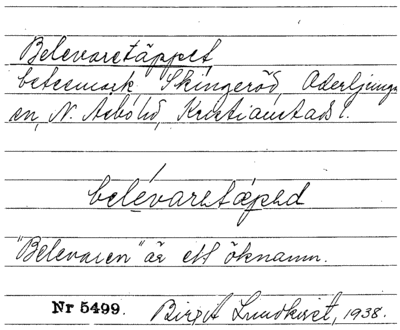 Belevaretäppet
betesmark, Skingeröd, Oderljunga
sn, N. Åsbo hd, Kristianstads l.
belèvaretæped
"Belevaren" är ett öknamn.
Nr 5499. Birgit Lundkvist, 1938.